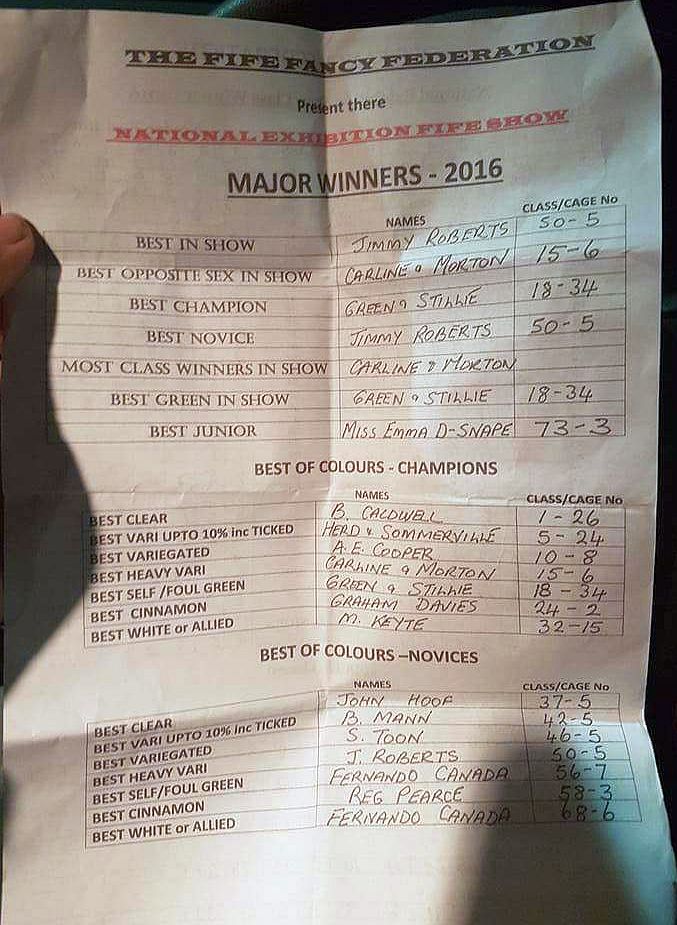 THE FIFE FANCY FEDERATION
Present there
NATIONAL EXHIBITION FIFE SHOW
MAJOR WINNERS - 2016
NAMES CLASS/CAGE No
BEST IN SHOW JIMMY ROBERTS 50-5
BEST OPPOSITE SEX IN SHOW CARLINE & MORTON 15-6
BEST CHAMPION GREEN & STILLIE 18-34
BEST NOVICE JIMMY ROBERTS 50-5
MOST CLASS WINNERS IN SHOW CARLINE & MORTON
BEST GREEN IN SHOW GREEN & STILLIE 18-34
BEST JUNIOR MISS EMMA D-SNAPE 73-3
BEST OF COLOURS - CHAMPIONS
NAMES CLASS/CAGE No
BEST CLEAR B. CALDWELL 1-26
BEST VARI UPTO 10% inc TICKED HERD & SOMMERVILLE 5-24
BEST VARIEGATED A.E. COOPER 10-8
BEST HEAVY VARI CARLINE & MORTON 15-6
BEST SELF /FOUL GREEN GREEN & STILLIE 18-34
BEST CINNAMON GRAHAM DAVIES 24-2
BEST WHITE or ALLIED M. KEYTE 32-15
BEST OF COLOURS –NOVICES
NAMES CLASS/CAGE No
BEST CLEAR JOHN HOOF 37-5
BEST VARI UPTO 10% inc TICKED B. MANN 42-5
BEST VARIEGATED S. TOON 46-5
BEST HEAVY VARI J. ROBERTS 50-5
BEST SELF/FOUL GREEN FERNANDO CANADA 56-7
BEST CINNAMON REG PEARCE 58-3
BEST WHITE or ALLIED FERNANDO CANADA 68-6